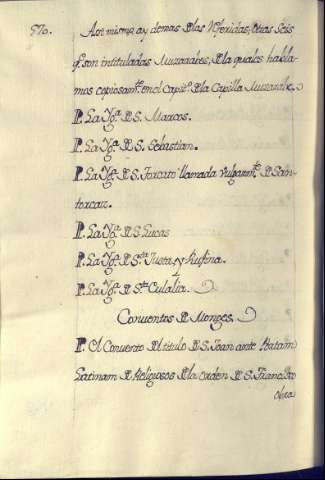 570.
Asimismo ay demas de las referidas, otras seis
q. son intituladas Muzarabes, de la quales habla-
mos copiosamte. en el capit.o de la Capilla Muzarabe.
P. La Yga. de S. Marcos.
P. La Yga. de S. Sebastian.
P. La Yga. de S. Torcato llamada vulgarmte. de San-
toacaz.
P. La Yga. de S. Lucas
P. La Yga. de Sta. Justa y Rufina.
P. La Yga. de Sta. Eulalia.
Conventos de Monges.
P. El Convento del titulo de S. Joan ante Portam
Latinam de Religiosos de la orden de S. Francisco